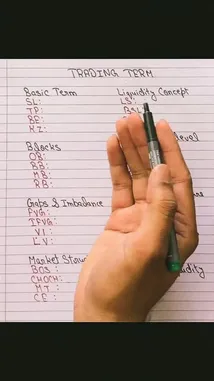 TRADING TERM
Basic Term
SL:
TP:
BE:
RI:
Liquidity Concept
LS:
BSL
evel
Blocks
OB:
BB:
MB:
RB:
Gaps & Imbalance
FVG:
IFVG:
VI:
LV:
Market
BOS:
CHOCH:
MT:
CE:
uidity